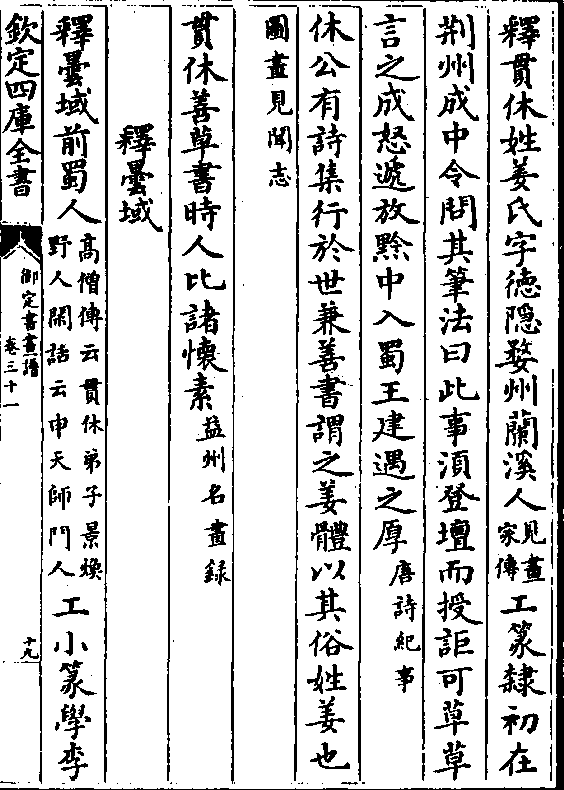 釋貫休姓姜氏字徳隠婺州蘭溪人見畫家傳工篆隸初在
荆州成中令問其筆法曰此事湏登壇而授詎可草草
言之成怒遞放黔中入蜀王建遇之厚唐詩紀事
休公有詩集行於世兼善書謂之姜體以其俗姓姜也
圖畫見聞志
貫休善草書時人比諸懷素益州名畫録
釋曇域
釋曇域前蜀人高僧傳云貫休弟子景煥野人閑話云申天師門人工小篆學李
欽定四庫全書
御定書畫譜
卷三十一
十九